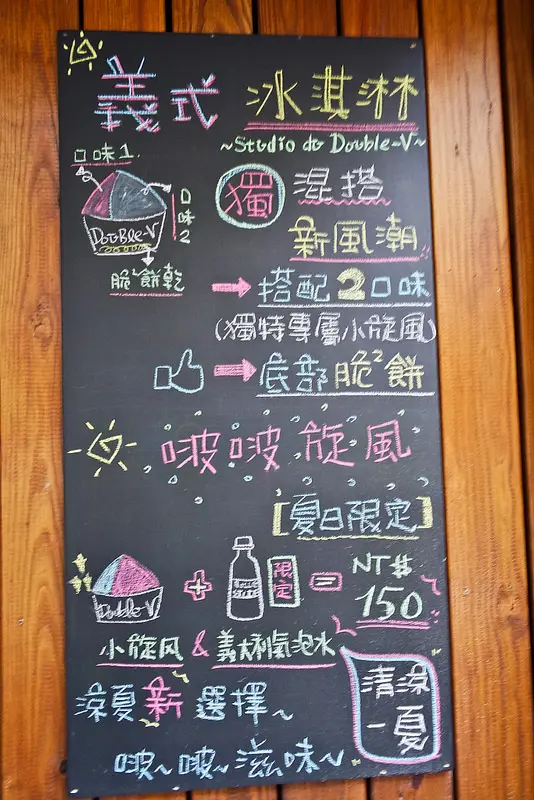 義式 冰淇淋
~Studio du Double-V~
口味1.
口味2
Double-V
脆²餅乾
獨 混搭
新風潮
搭配2口味
(獨特專屬小旋風)
底部脆²餅
啵啵旋風
[夏日限定]
Double-V
限定
NT$
150
小旋风 & 義大利氣泡水
涼夏新選擇~
清涼
一夏
啵~啵~滋味~